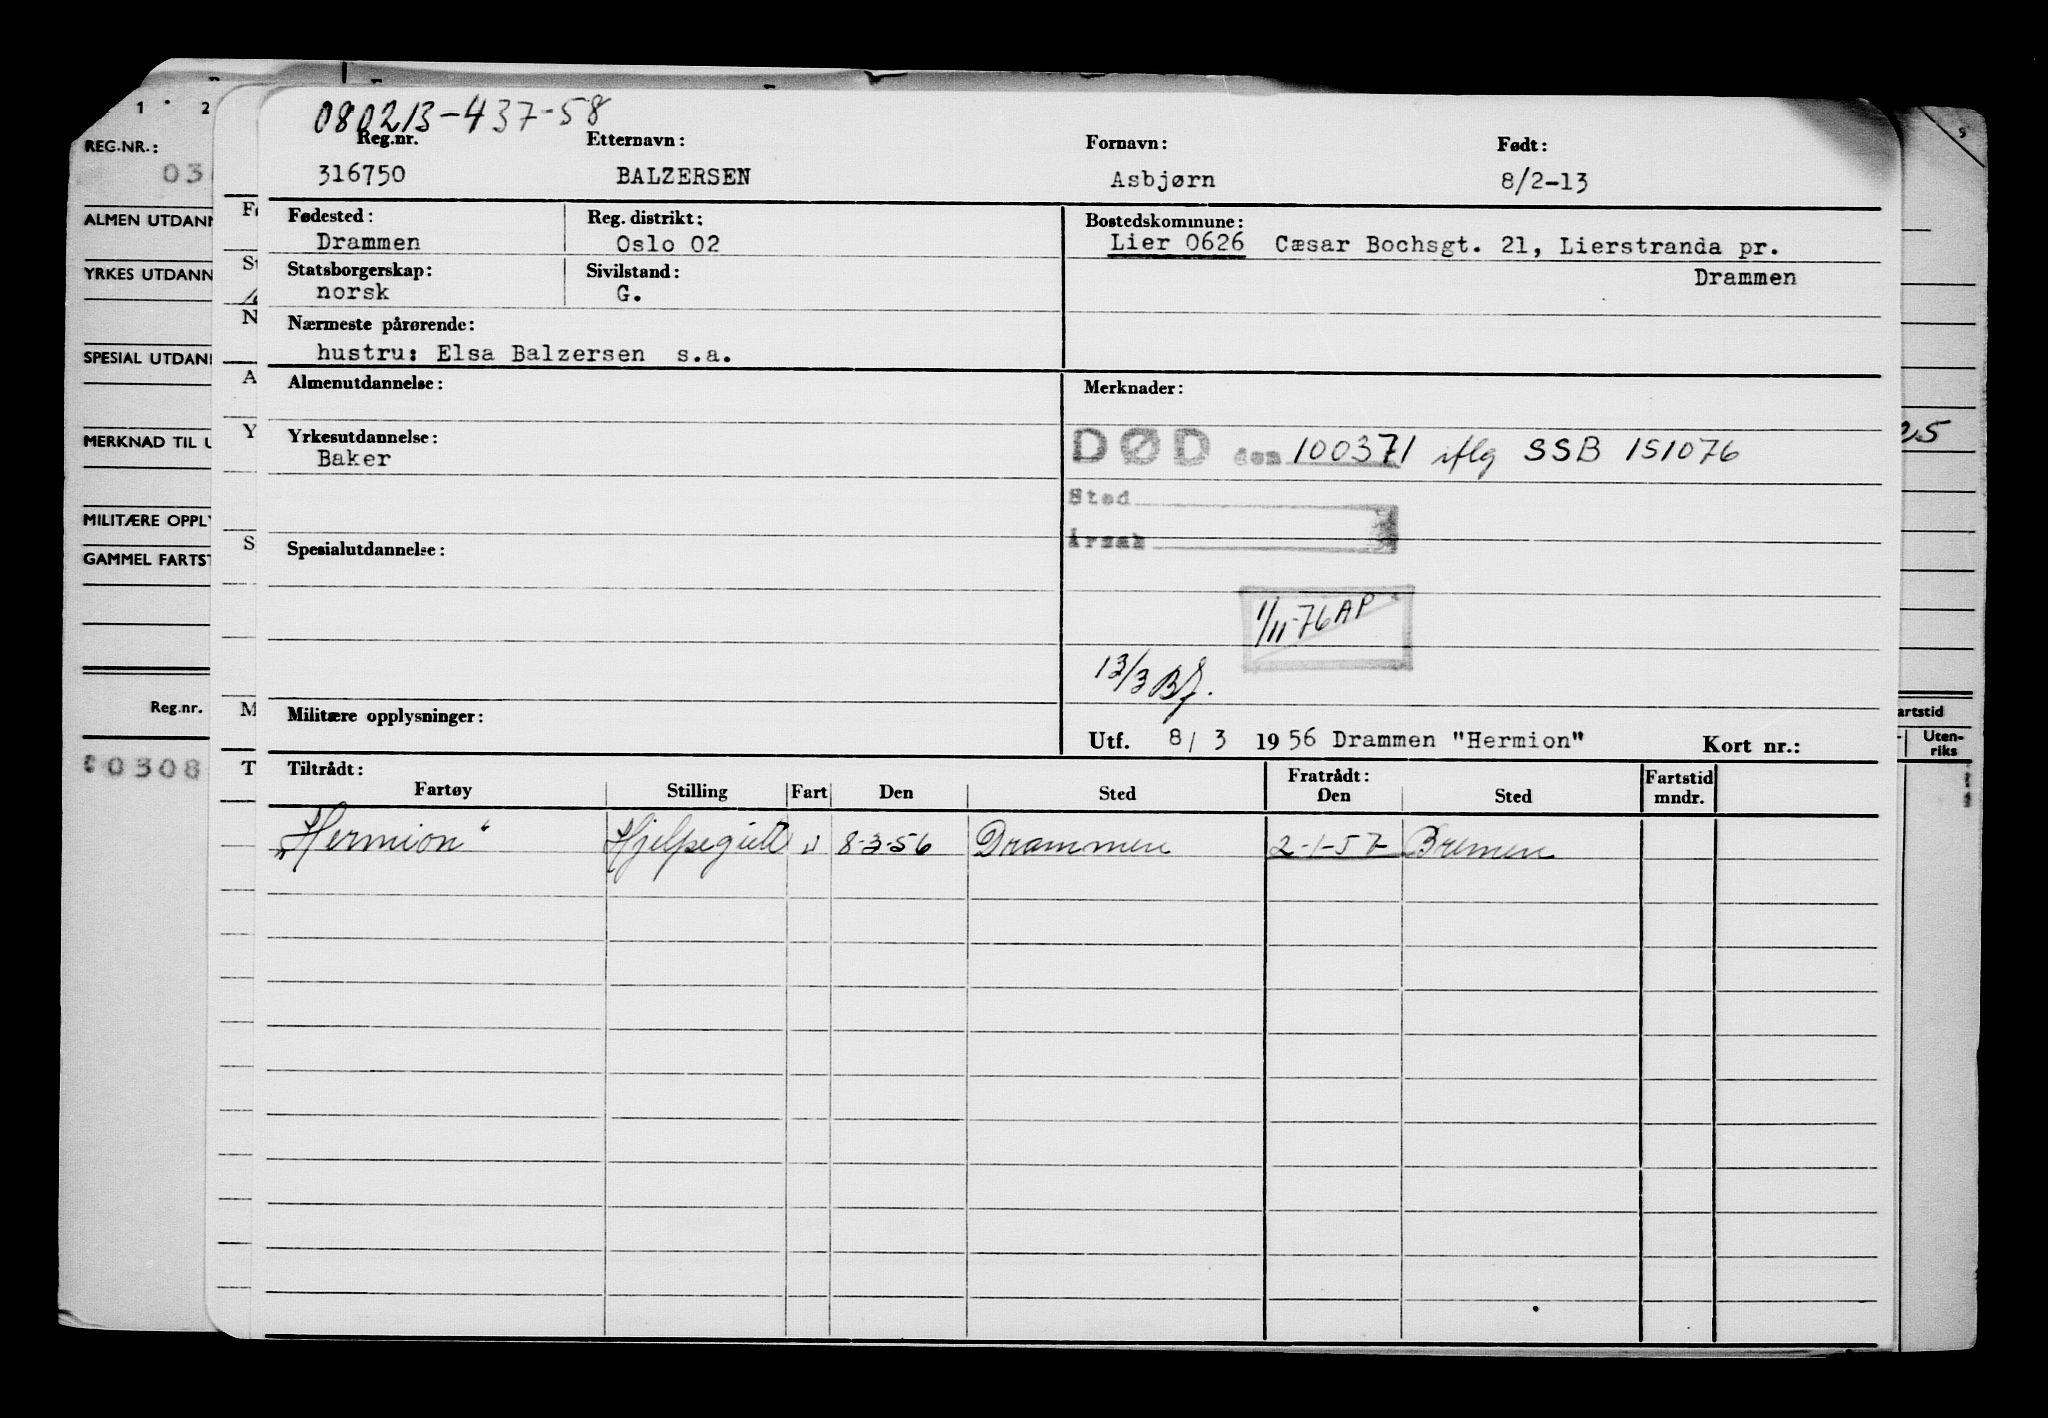 080213-437-58
Reg.nr. Etternavn: Fornavn: Født:
316750 BALZERSEN Asbjørn 8/2-13
Fødested: Reg. distrikt: Bostedskommune:
Drammen Oslo 02 Lier 0626 Cæsar Bochsgt. 21, Lierstranda pr.
Drammen
Statsborgerskap: Sivilstand:
norsk G.
Nærmeste pårørende:
hustru: Elsa Balzersen s.a.
Almenutdannelse: Merknader:
Yrkesutdannelse:
Baker
DØD den 100371 iflg SSB 151076
Sted
Årsak
Spesialutdannelse:
1/11-76 AP
13/3 Bj.
Militære opplysninger:
Utf. 8/3 1956 Drammen "Hermion" Kort nr.:
Tiltrådt: Fratrådt: Fartstid
Fartøy Stilling Fart Den Sted Den Sted mndr.
"Hermion" Hjelpegutt U 8-3-56 Drammen 2-1-57 Bremen
1 2
REG.NR.:
03
ALMEN UTDANN
YRKES UTDANN
SPESIAL UTDAN
MERKNAD TIL U
MILITÆRE OPPLY
GAMMEL FARTST
Reg.nr.
0308
F
S
N
A
Y
S
M
T
9
25
artstid
Uten-
riks